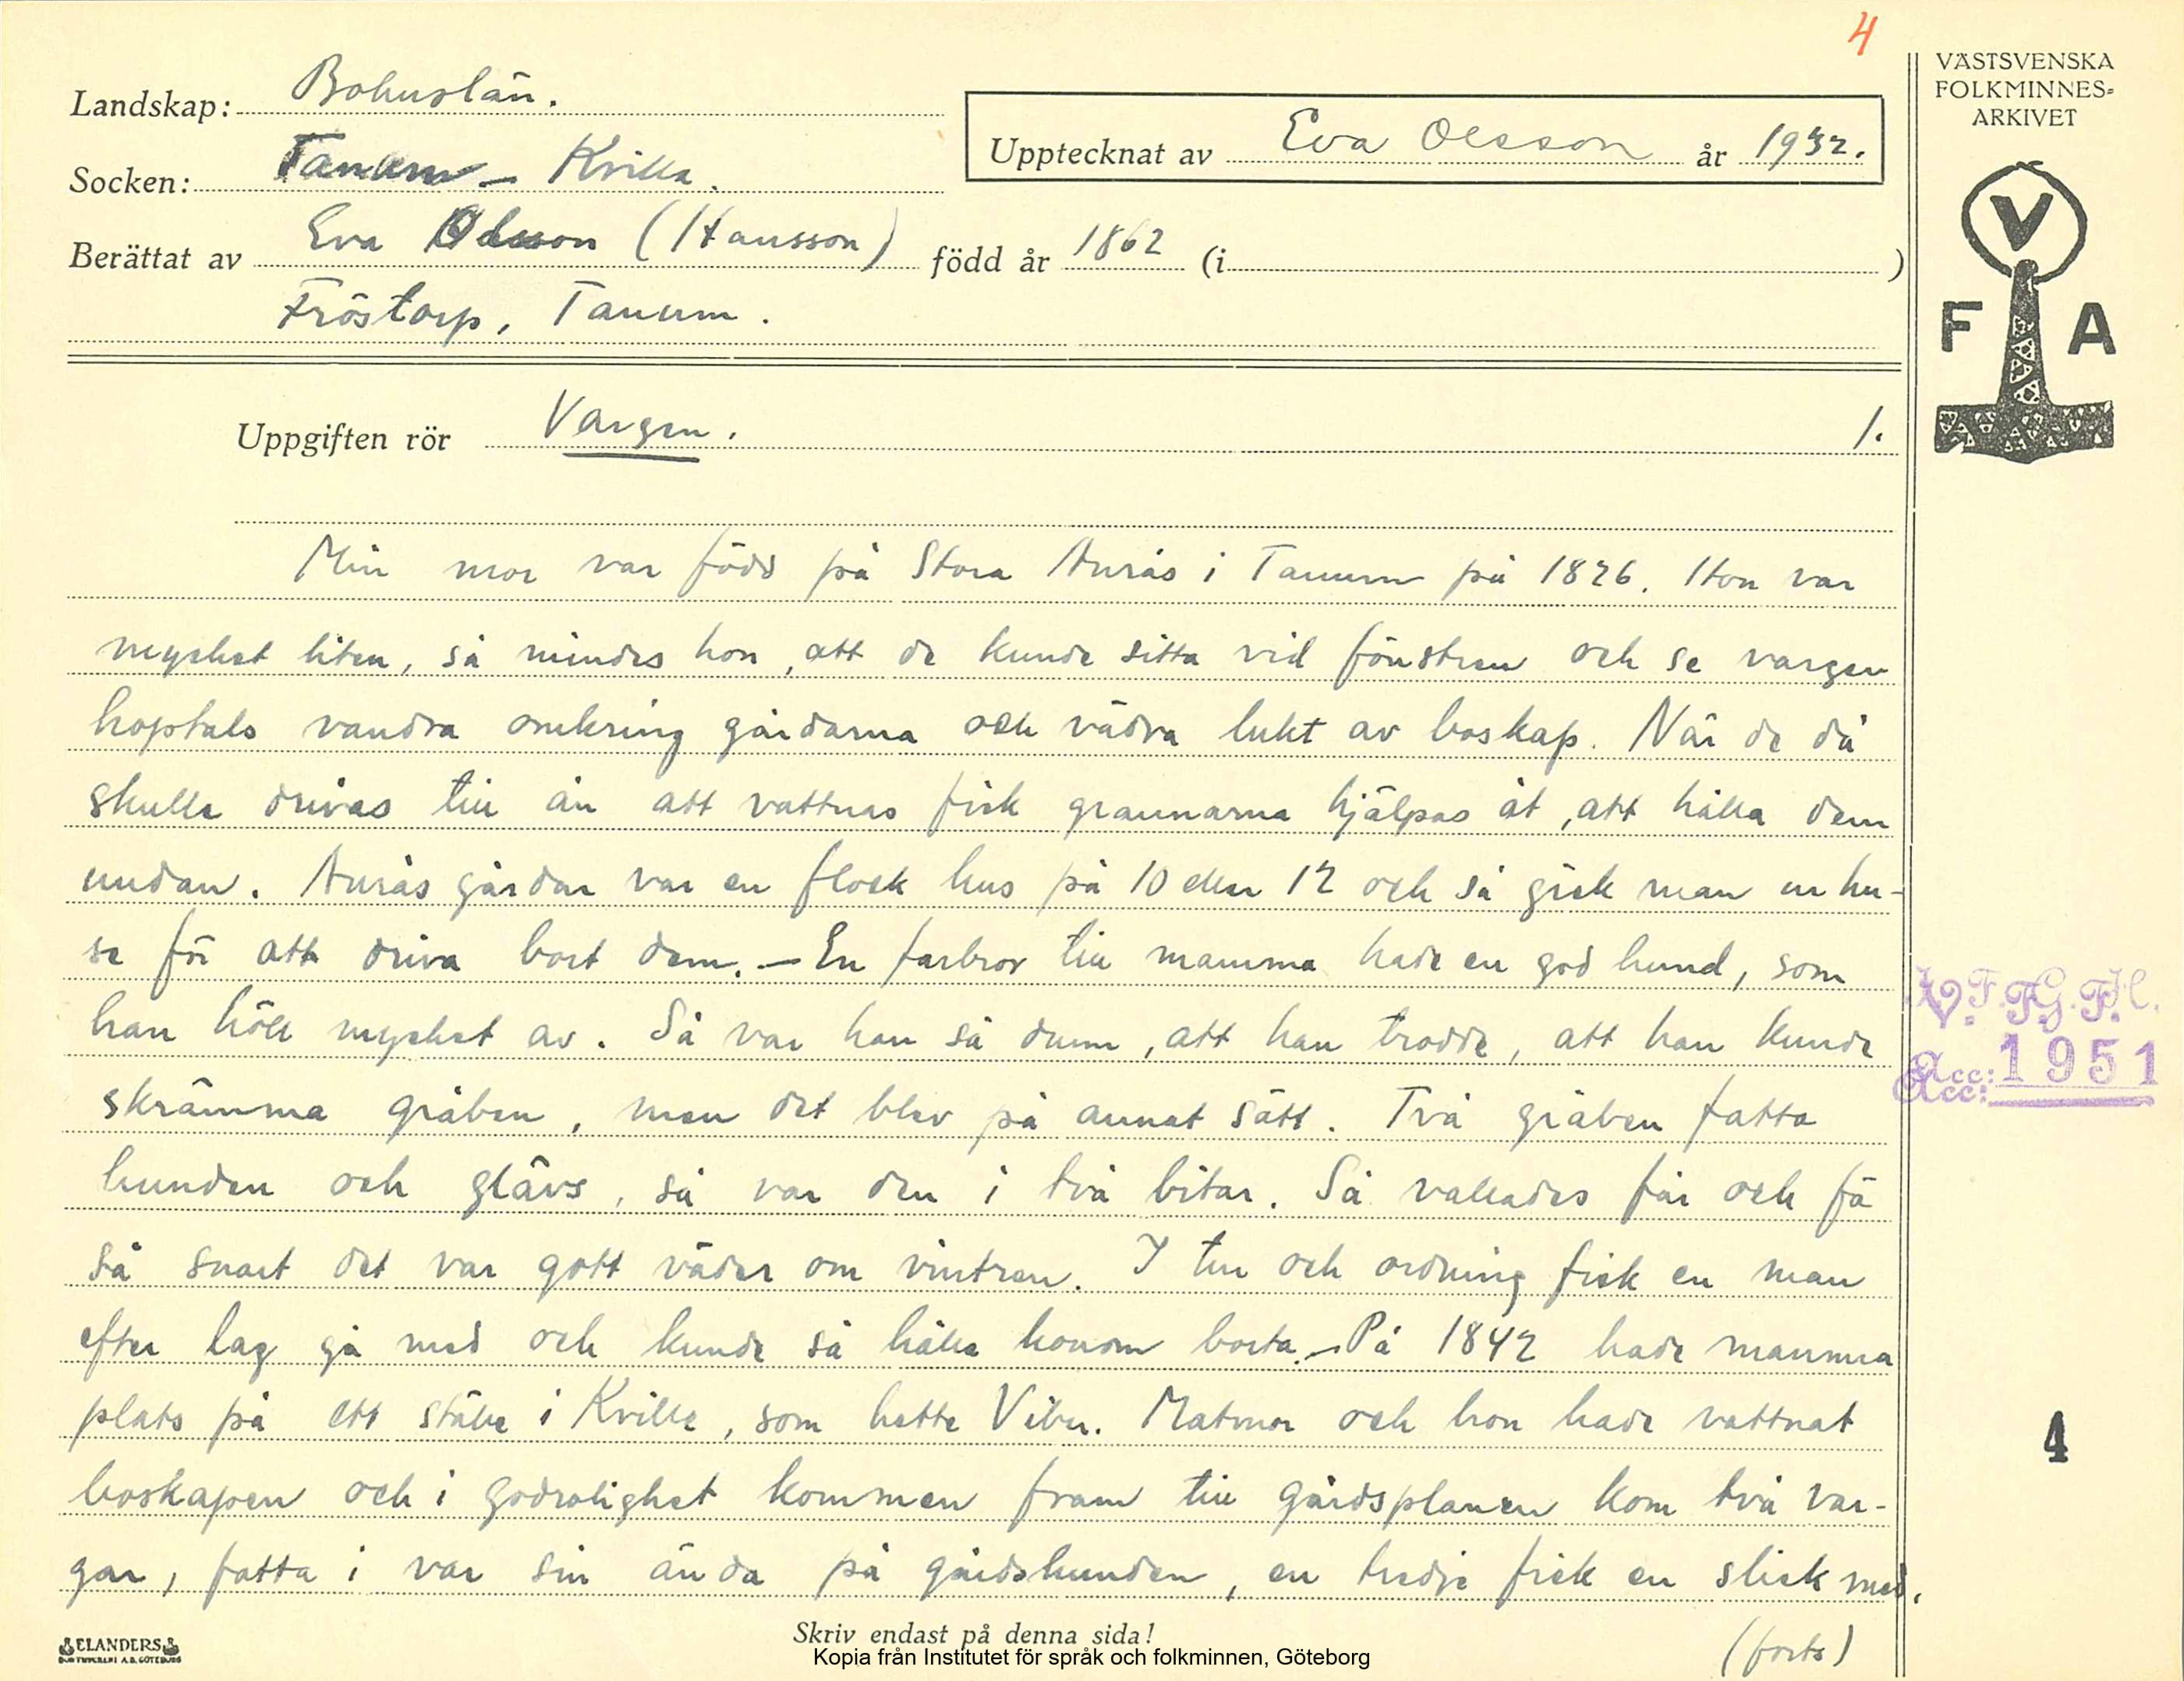 4
VÄSTSVENSKA
FOLKMINNES-
ARKIVET
Landskap: Bohuslän.
Upptecknat av Eva Olsson år 1932.
Socken: Tanum – Kville.
Berättat av Eva Olsson (Hansson) född år 1862 (i )
Fröstorp, Tanum.
V
F A
Uppgiften rör Vargen. 1.
Min mor var född på Stora Anrås i Tanum på 1826. Hon var
mycket liten, så mindes hon, att de kunde sitta vid fönstren och se vargen
hoptals vandra omkring gårdarna och vädra lukt av boskap. När de då
skulle drivas till ån att vattnas fick grannarna hjälpas åt, att hålla dem
undan. Anrås gårdar var en flock hus på 10 eller 12 och så gick man ur hu-
se för att driva bort dem. – En farbror till mamma hade en god hund, som
han höll mycket av. Så var han så dum, att han trodde, att han kunde
skrämma gråben, men det blev på annat sätt. Två gråben fatta
hunden och glävs, så var den i två bitar. Så vallades får och fä
så snart det var gott väder om vintren. I tur och ordning fick en man
efter lag gå med och kunde så hålla honom borta. – På 1842 hade mamma
plats på ett ställe i Kville, som hette Viber. Matmor och hon hade vattnat
boskapen och i godrolighet kommen fram till gårdsplanen kom två var-
gar, fatta i var sin ända på gårdshunden, en tredje fick en slick med.
(forts)
V.F.G.F.
Acc: 1951
4
ELANDERS
BOKTRYCKERI A.B. GÖTEBORG
Skriv endast på denna sida!
Kopia från Institutet för språk och folkminnen, Göteborg